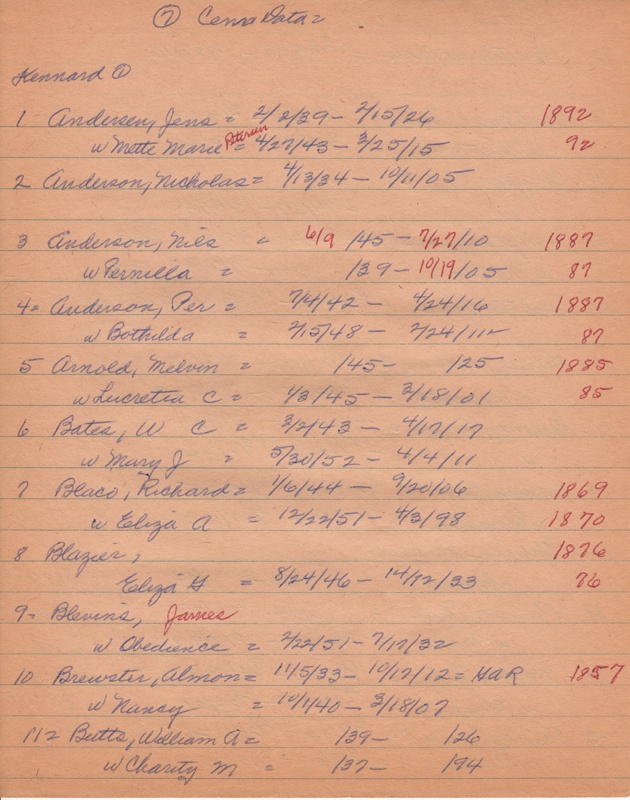 ⑦ Cems Data =
Kennard ①
1 Andersen, Jens = 2/2/39 - 2/15/26 1892
w Mette Marie Petersen = 4/27/43 - 3/25/15 92
2 Anderson, Nicholas = 4/13/34 - 10/11/05
3 Anderson, Nils = 6/9 /45 - 7/27/10 1887
w Pernilla = /39 - 10/19/05 87
4 = Anderson, Per = 7/4/42 - 4/24/16 1887
w Bothilda = 2/15/48 - 2/24/11 87
5 Arnold, Melvin = /45 - /25 1885
w Lucretia C = 1/3/45 - 2/18/01 85
6 Bates, W C = 3/2/43 - 4/17/17
w Mary J = 5/30/52 - 4/4/11
7 Blaco, Richard = 1/6/44 - 9/20/06 1869
w Eliza A = 12/22/51 - 4/3/98 1870
8 Blazier, 1876
Eliza = 8/24/46 - /33 76
9 - Blevins, James
w Obedience = 2/22/51 - 7/17/32
10 Brewster, Almon = 11/5/33 - 10/17/12 = GAR 1857
w Nancy = 10/1/40 - 3/18/07
11 = Butts, William A = /39 - /26
w Charity M = /37 - /94